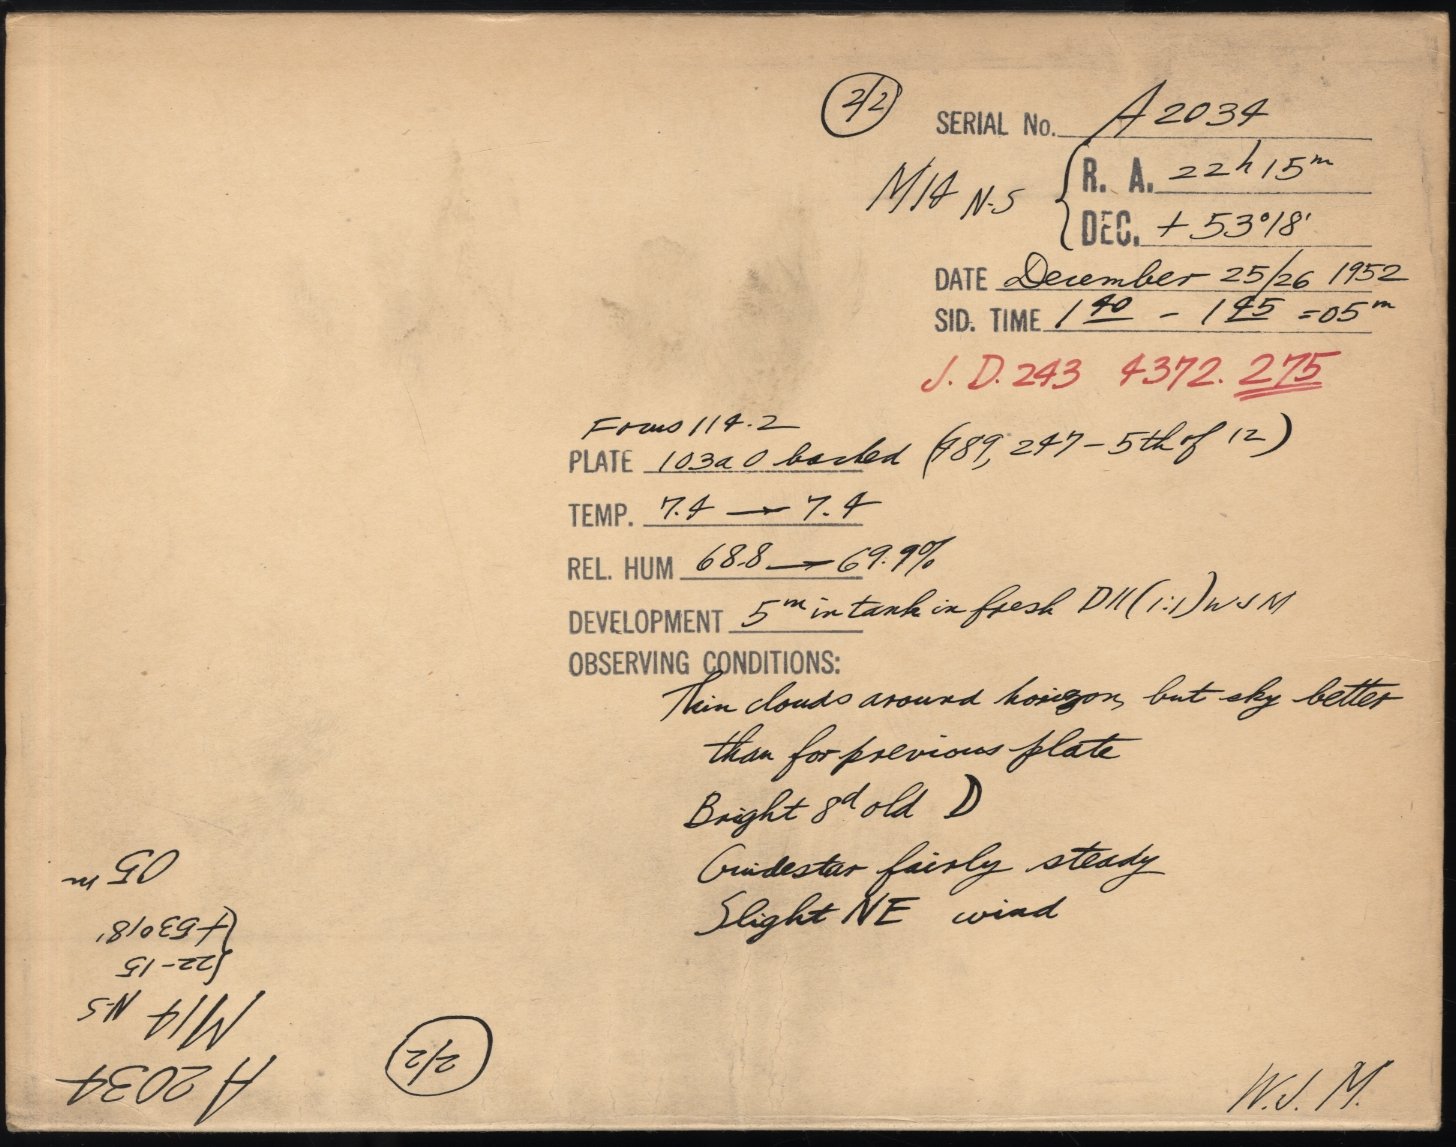 2/2
SERIAL No. A 2034
M14 N-S { R. A. 22h 15m
DEC. + 53°18'
DATE December 25/26 1952
SID. TIME 1 40 - 1 45 = 05m
J. D. 243 4372. 275
Focus 114.2
PLATE 103a O backed (489, 247 - 5th of 12)
TEMP. 7.4 → 7.4
REL. HUM 68.8 → 69.9%
DEVELOPMENT 5m in tank in fresh D11 (1:1) WJM
OBSERVING CONDITIONS:
Thin clouds around horizon, but sky better
than for previous plate
Bright 8d old D
Guidestar fairly steady
Slight NE wind
W. J. M.
A 2034
2/2
M14 N-S
{22-15
+53°18'
05m